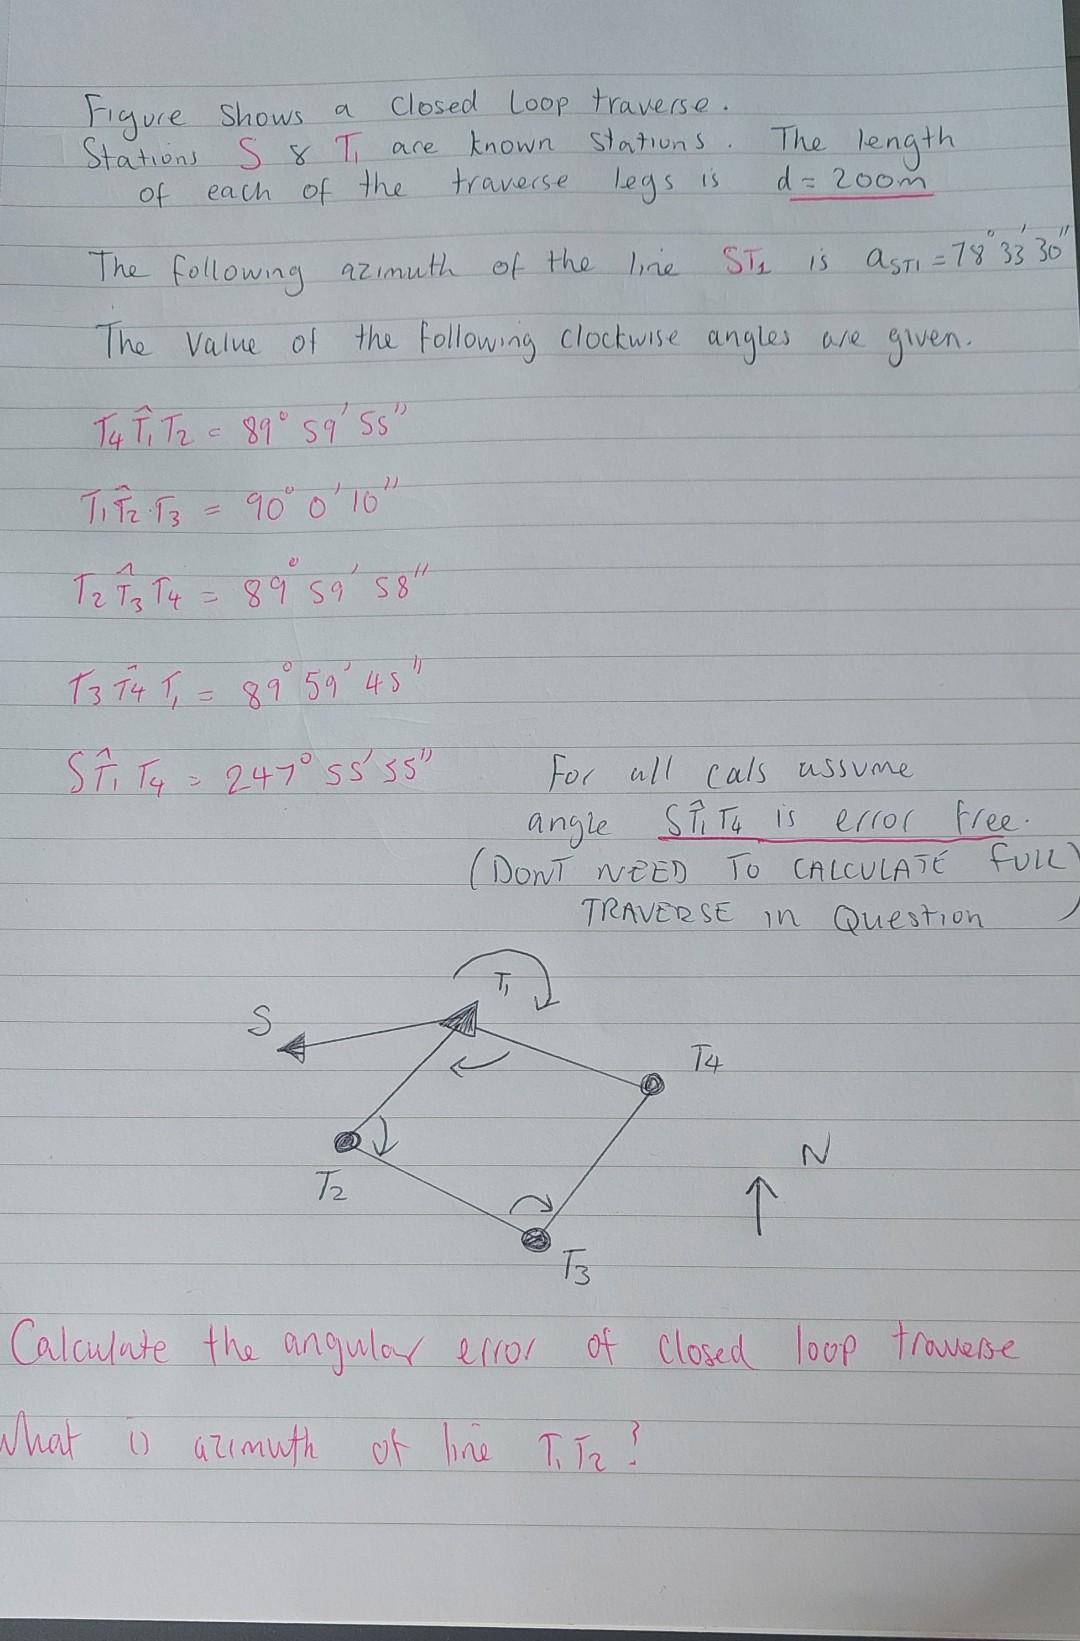 Figure shows a closed loop traverse.
Stations S & T1 are known stations. The length
of each of the traverse legs is d = 200m
The following azimuth of the line ST1 is aST1 = 78° 33' 30"
The Value of the following clockwise angles are given.
T4 T̂1 T2 = 89° 59' 55"
T1 T̂2 T3 = 90° 0' 10"
T2 T̂3 T4 = 89° 59' 58"
T3 T̂4 T1 = 89° 59' 45"
S T̂1 T4 = 247° 55' 55"
For all cals assume
angle S T̂1 T4 is error free.
(DONT NEED TO CALCULATE FULL
TRAVERSE in Question )
T1
S
T4
N
T2
T3
Calculate the angular error of closed loop traverse
What is azimuth of line T1 T2?